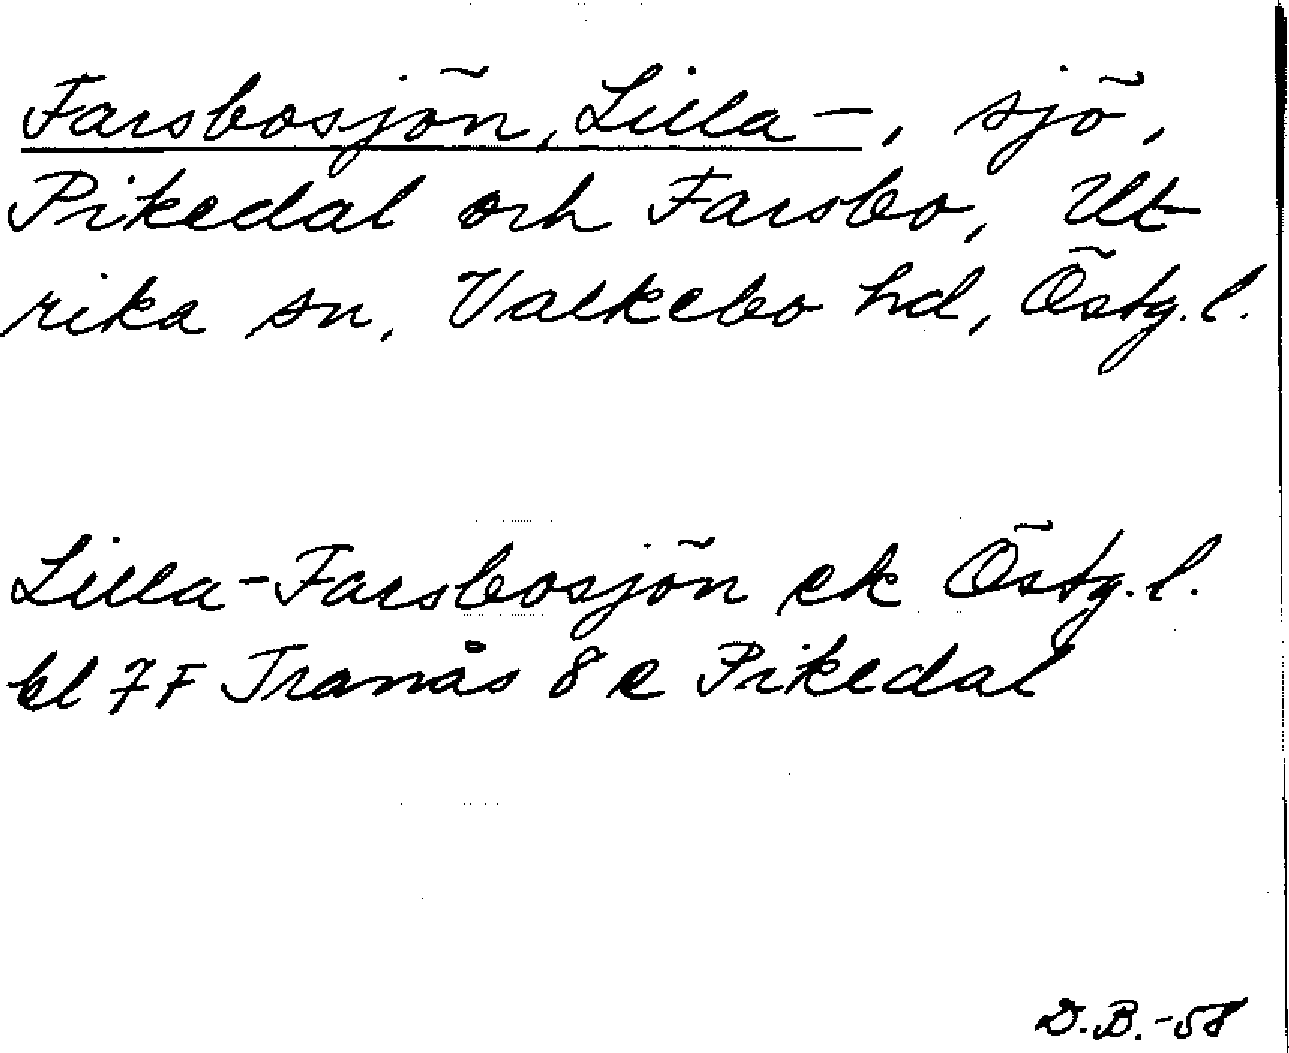 Farsbosjön, Lilla –, sjö,
Pikedal och Farsbo, Ult
rika sn, Valkebo hd, Östg.l.
Lilla-Farsbosjön ek Östg.l.
bl 7F Tranås 8 e Pikedal
D.B.-58